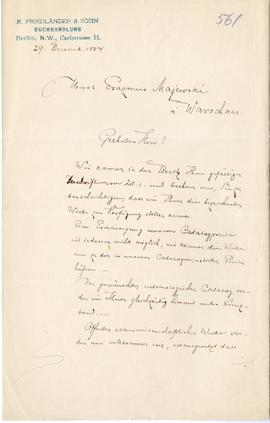 R. FRIEDLÄNDER & SOHN
BUCHHANDLUNG
Berlin, N.W., Carlstrasse 11.
561.
29. Decemb. 1884
Herrn Erasmus Majewski
in Warschau.
Geehrter Herr!
Wir kamen in den Besitz Ihrer gefälligen
Zuschrift vom 20. c. und beehren uns, Sie zu
benachrichtigen dass wir Ihnen die
Werke zur Verfügung stellen können.
Eine Ermässigung unserer Catalogpreise
ist indessen nicht möglich, wir können die Werke
nur zu den in unseren Catalogen Preisen
liefern.
Den gewünschten entomologischen Catalog
wir Ihnen gleichzeitig hiermit unter
band.
wissenschaftliche Werke
uns willkommen sein, vorausgesetzt dass